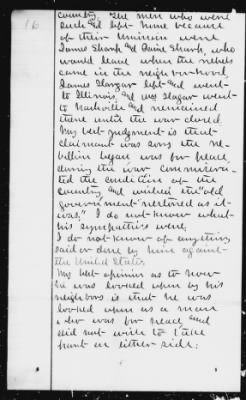 16
country. The men who went
such and left home because
of their Unionism went
James Sharp and Quine Sharp, who
would leave when the rebels
came in the neighborhood,
James Slagar left and went
to Illinois, and Wm Slagar went
to Nashville and remained
there until the war closed.
My best judgment is that
claimant was since the re-
bellion began was for peace
during the war commisera-
ted the condition of the
country and wished the "old
government restored as it
was," I do not know what
his sympathies were,
I do not know of anything
said or done by him against
the United States,
My best opinion as to how
he was looked upon by his
neighbors is that he was
looked upon as a man
who was for peace and
did not wish to take
part on either side: